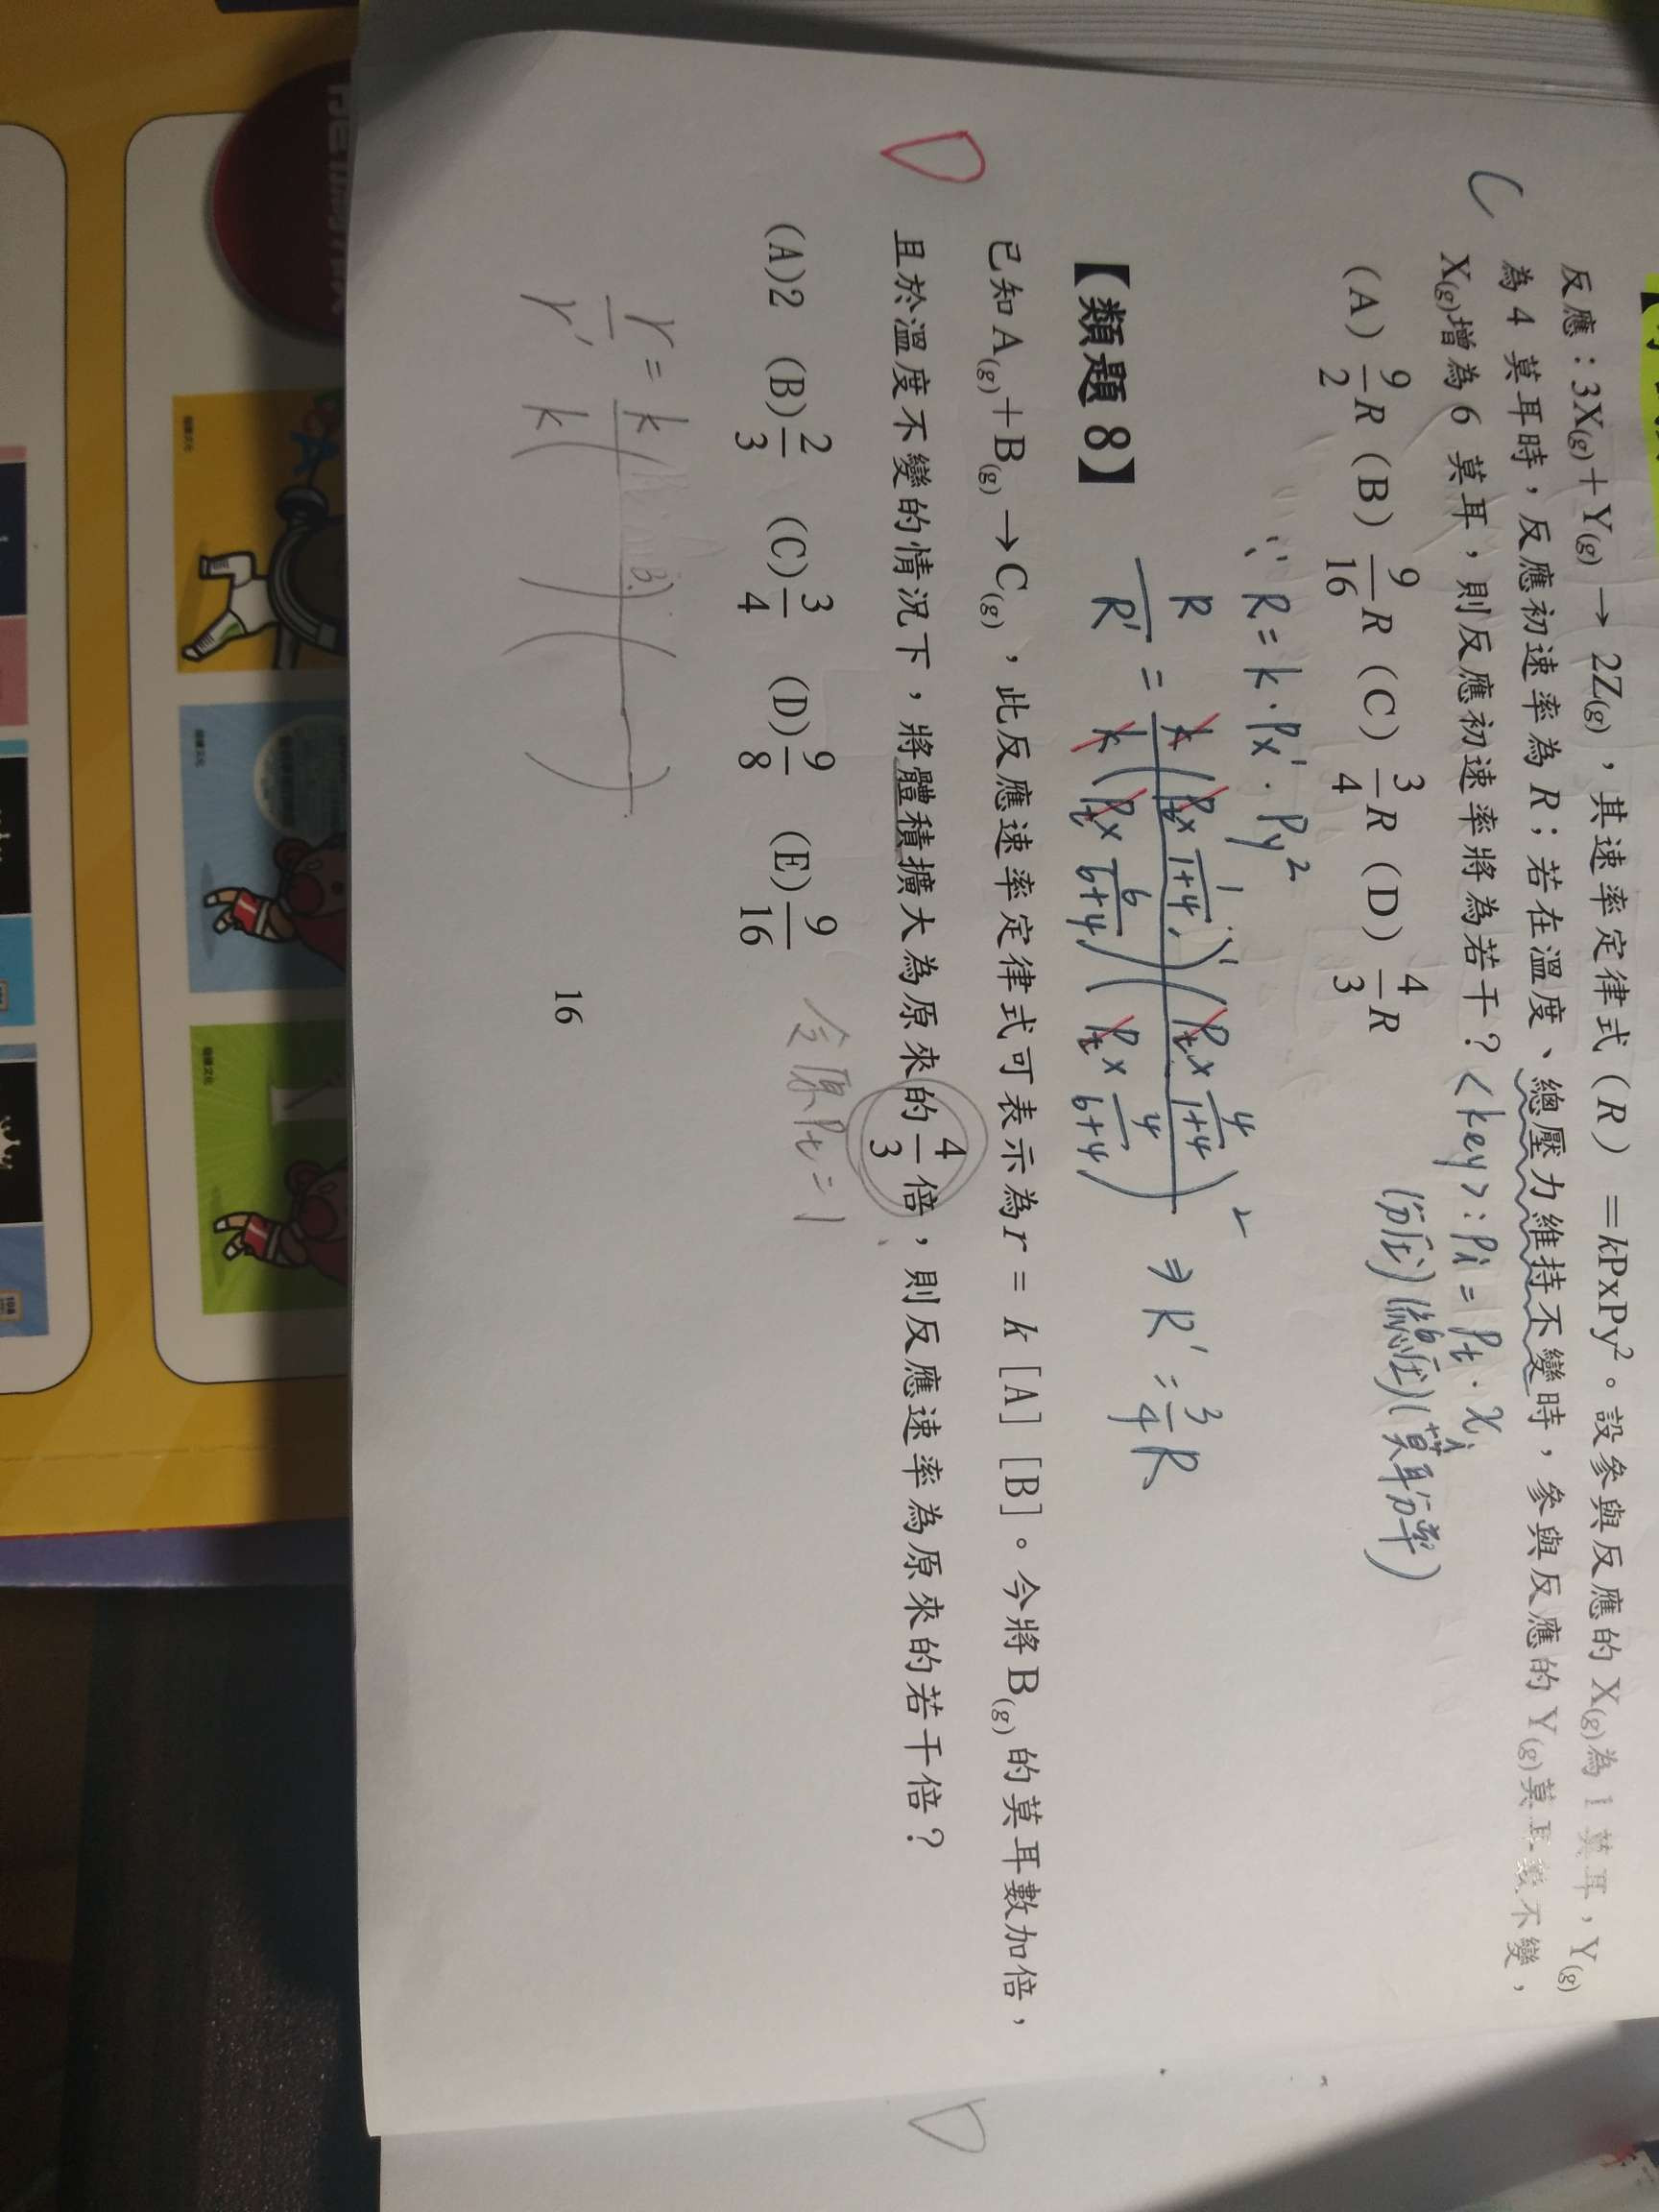 反應：3X(g)＋Y(g) → 2Z(g)，其速率定律式（R）＝kPxPy²。設參與反應的 X(g)為 1 莫耳，Y(g)
為 4 莫耳時，反應初速率為 R；若在溫度、總壓力維持不變時，參與反應的 Y(g)莫耳數不變，
C
X(g)增為 6 莫耳，則反應初速率將為若干？
<key>: Pi = Pt · Xi
(分壓) (總壓) (莫耳分率)
(A) 9/2 R (B) 9/16 R (C) 3/4 R (D) 4/3 R
∵ R = k · Px¹ · Py²
R/R' = k(Pt × 1/(1+4))¹(Pt × 4/(1+4))² / k(Pt × 6/(6+4))(Pt × 4/(6+4)) ⇒ R' = 3/4 R
【類題 8】
已知 A(g)＋B(g)→C(g)，此反應速率定律式可表示為 r = k [A] [B]。今將 B(g)的莫耳數加倍，
D
且於溫度不變的情況下，將體積擴大為原來的 4/3 倍，則反應速率為原來的若干倍？
(A)2 (B) 2/3 (C) 3/4 (D) 9/8 (E) 9/16
令原Pt = 1
r/r' = k( )( ) / k( )( )
16
D